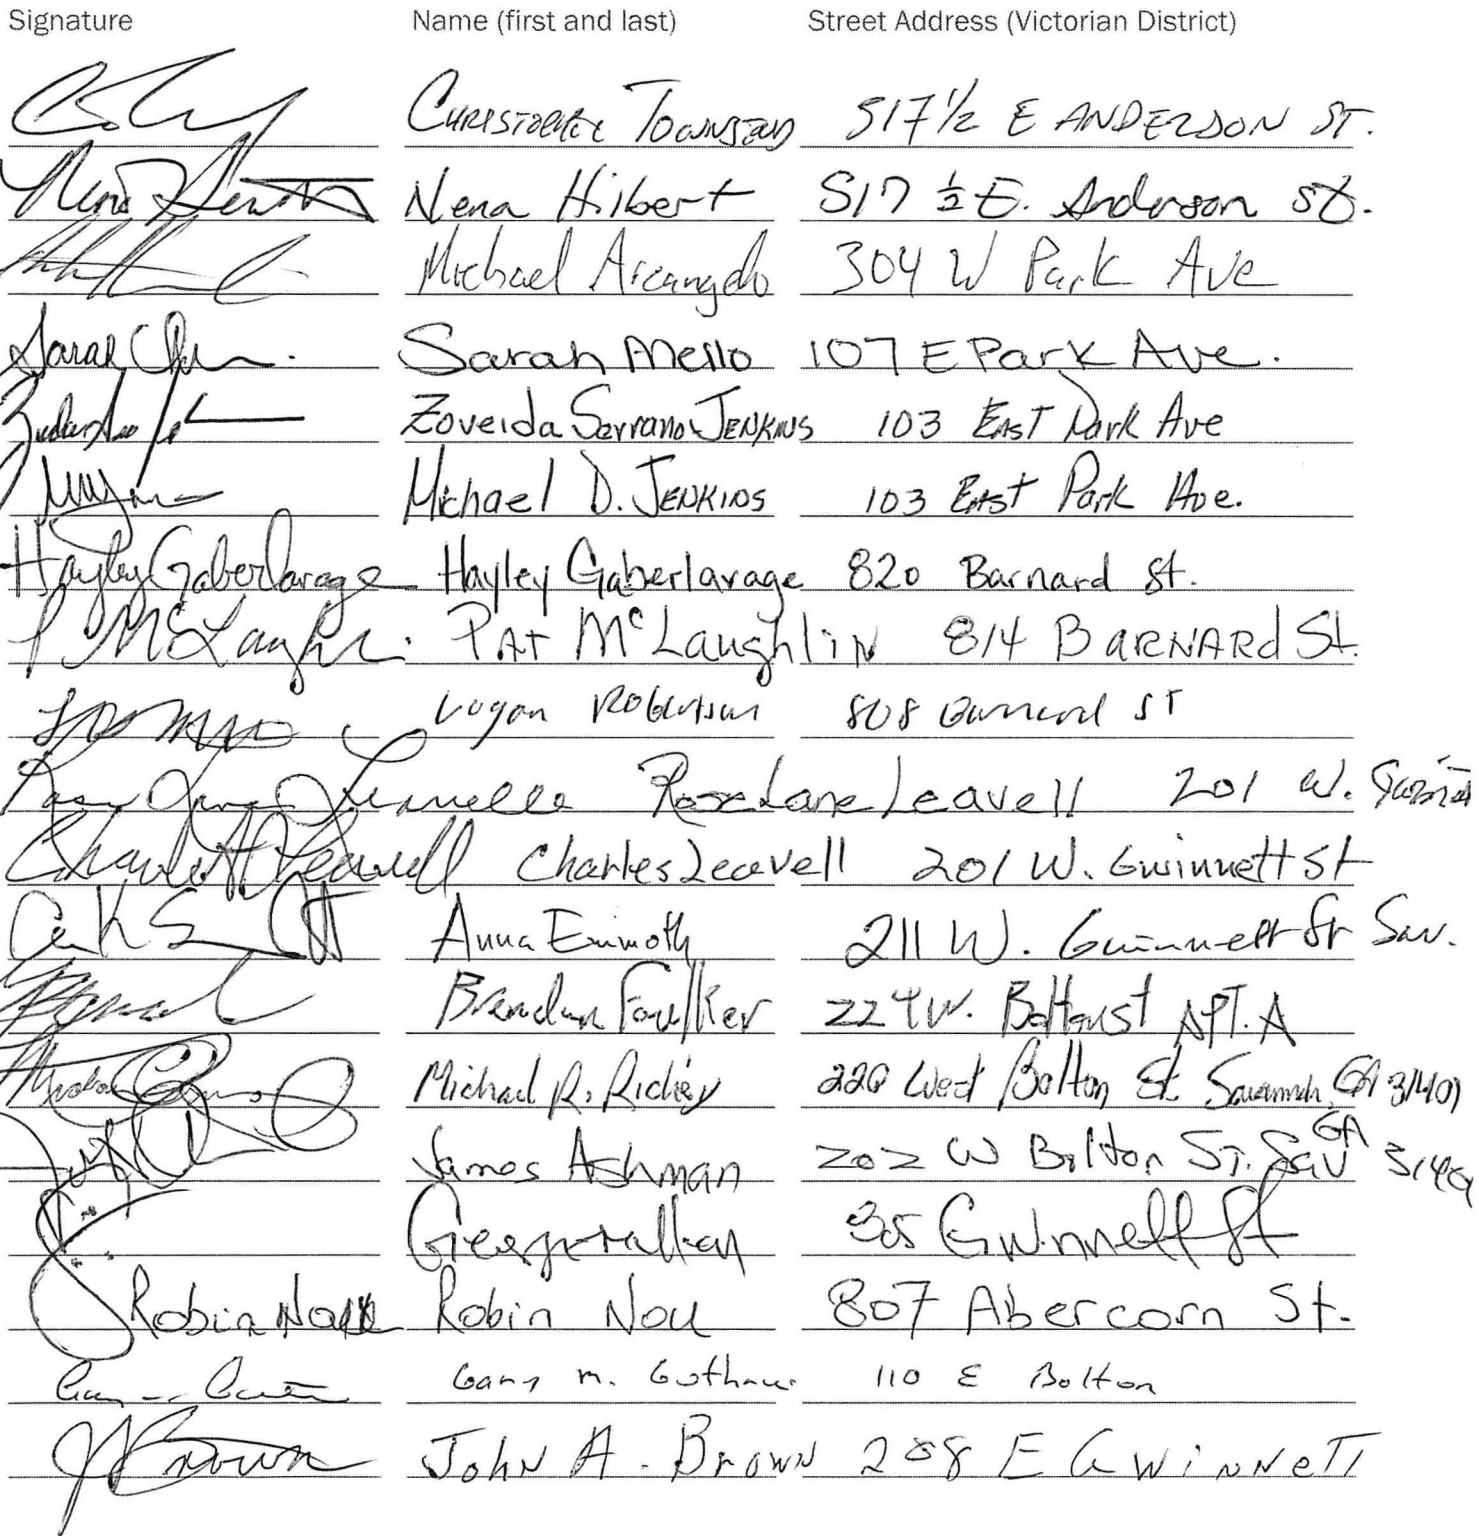 Signature Name (first and last) Street Address (Victorian District)
Christopher Townsend 517 1/2 E ANDERSON ST.
Nena Hilbert 517 1/2 E. Anderson St.
Michael Arcangelo 304 W Park Ave
Sarah Mello 107 E Park Ave.
Zoveida Serrano-JENKINS 103 EAST Park Ave
Michael D. JENKINS 103 EAST Park Ave.
Hayley Gaberlavage Hayley Gaberlavage 820 Barnard St.
P McLaughlin PAT McLaughlin 814 BARNARd St.
Logan Robertson 808 Barnard ST
Rose Lane Leavell 201 W.
Charles A Leavell Charles Leavell 201 W. Gwinnett St
Anna 211 W. Gwinnett St Sav.
Brendan Faulker 224 W. Bolton st APT. A
Michael R. Richey 220 West Bolton St. Savannah, GA 31401
James Ashman 202 W Bolton ST. Sav GA 31401
George Gwinnett St
Robin Robin Nou 807 Abercorn St.
Gary M. 110 E Bolton
JA Brown John A. Brown 208 E GwiNNeTT